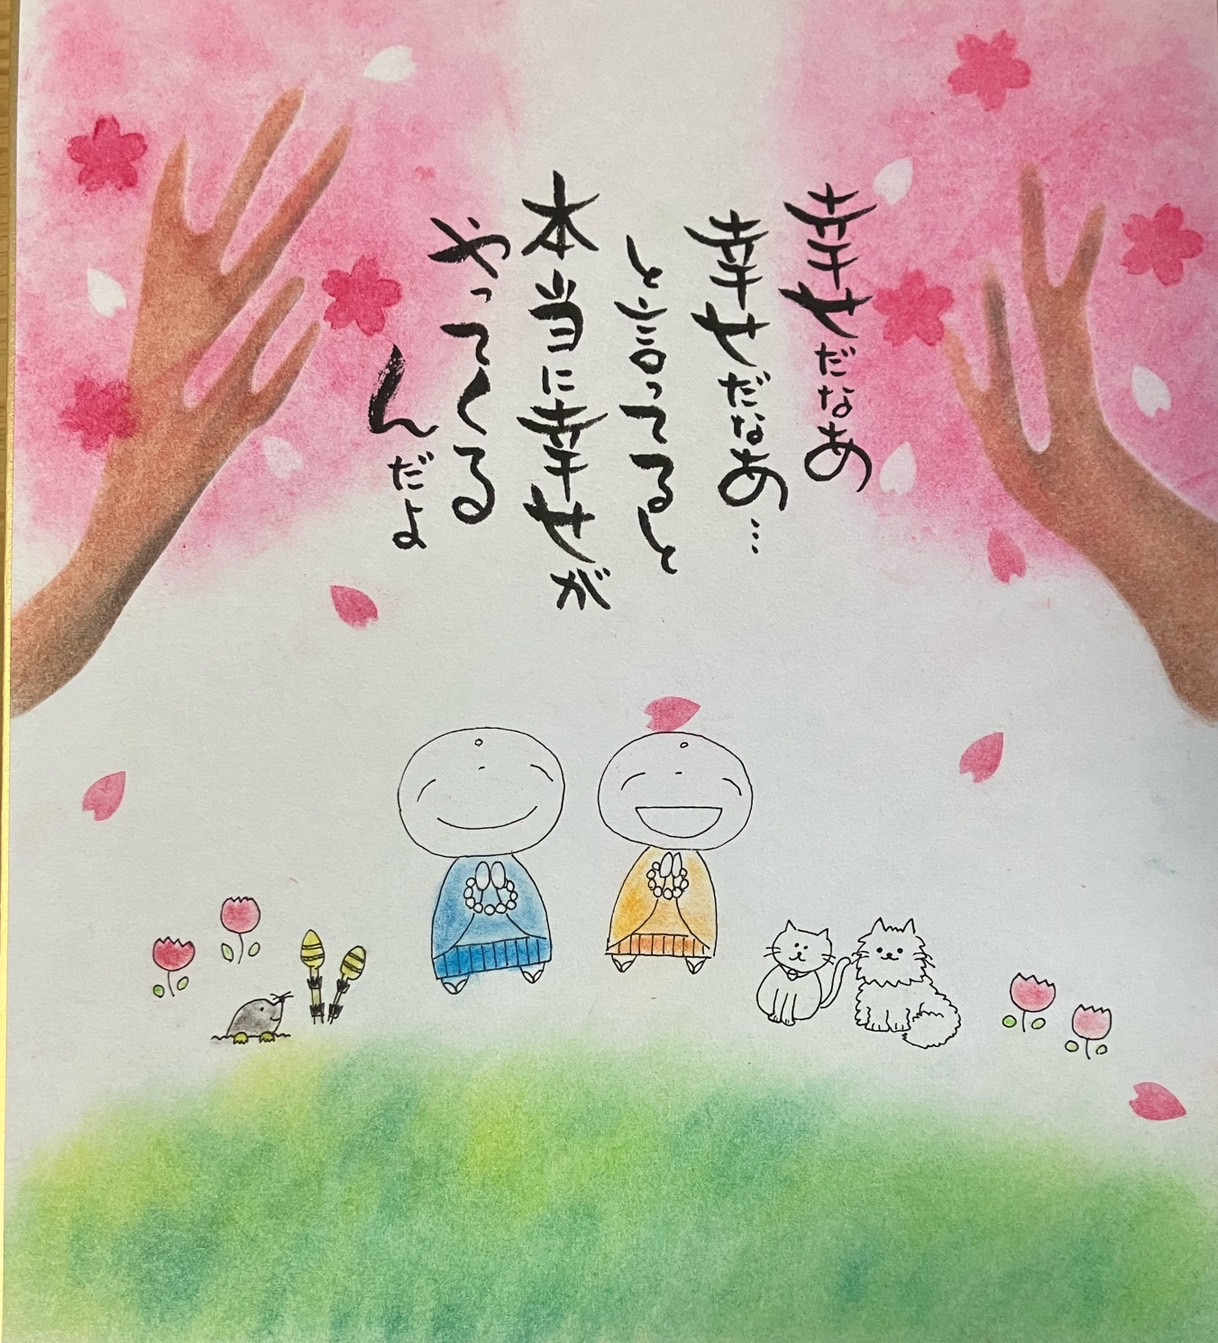 幸せだなあ
幸せだなあ…
と言ってると
本当に幸せが
やってくる
んだよ